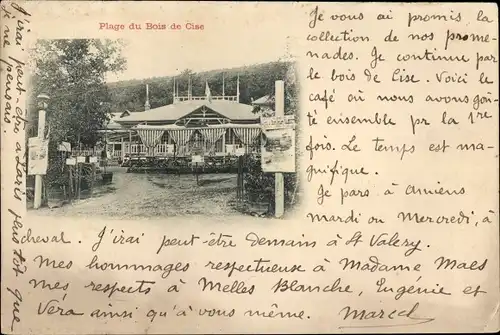 Plage du Bois de Cise
Je vous ai promis la
collection de nos prome-
nades. Je continue par
le bois de Cise. Voici le
café où nous avons goû-
té ensemble par la 1re
fois. Le temps est ma-
gnifique.
Je pars à Amiens
mardi ou Mercredi, à
cheval. J'irai peut-être Demain à St Valery.
Mes hommages respectueux à Madame Maes
mes respects à Melles Blanche, Eugénie et
Véra ainsi qu'à vous même. Marcel
J'irai peut-être à Paris plus tôt que
je ne pensais.